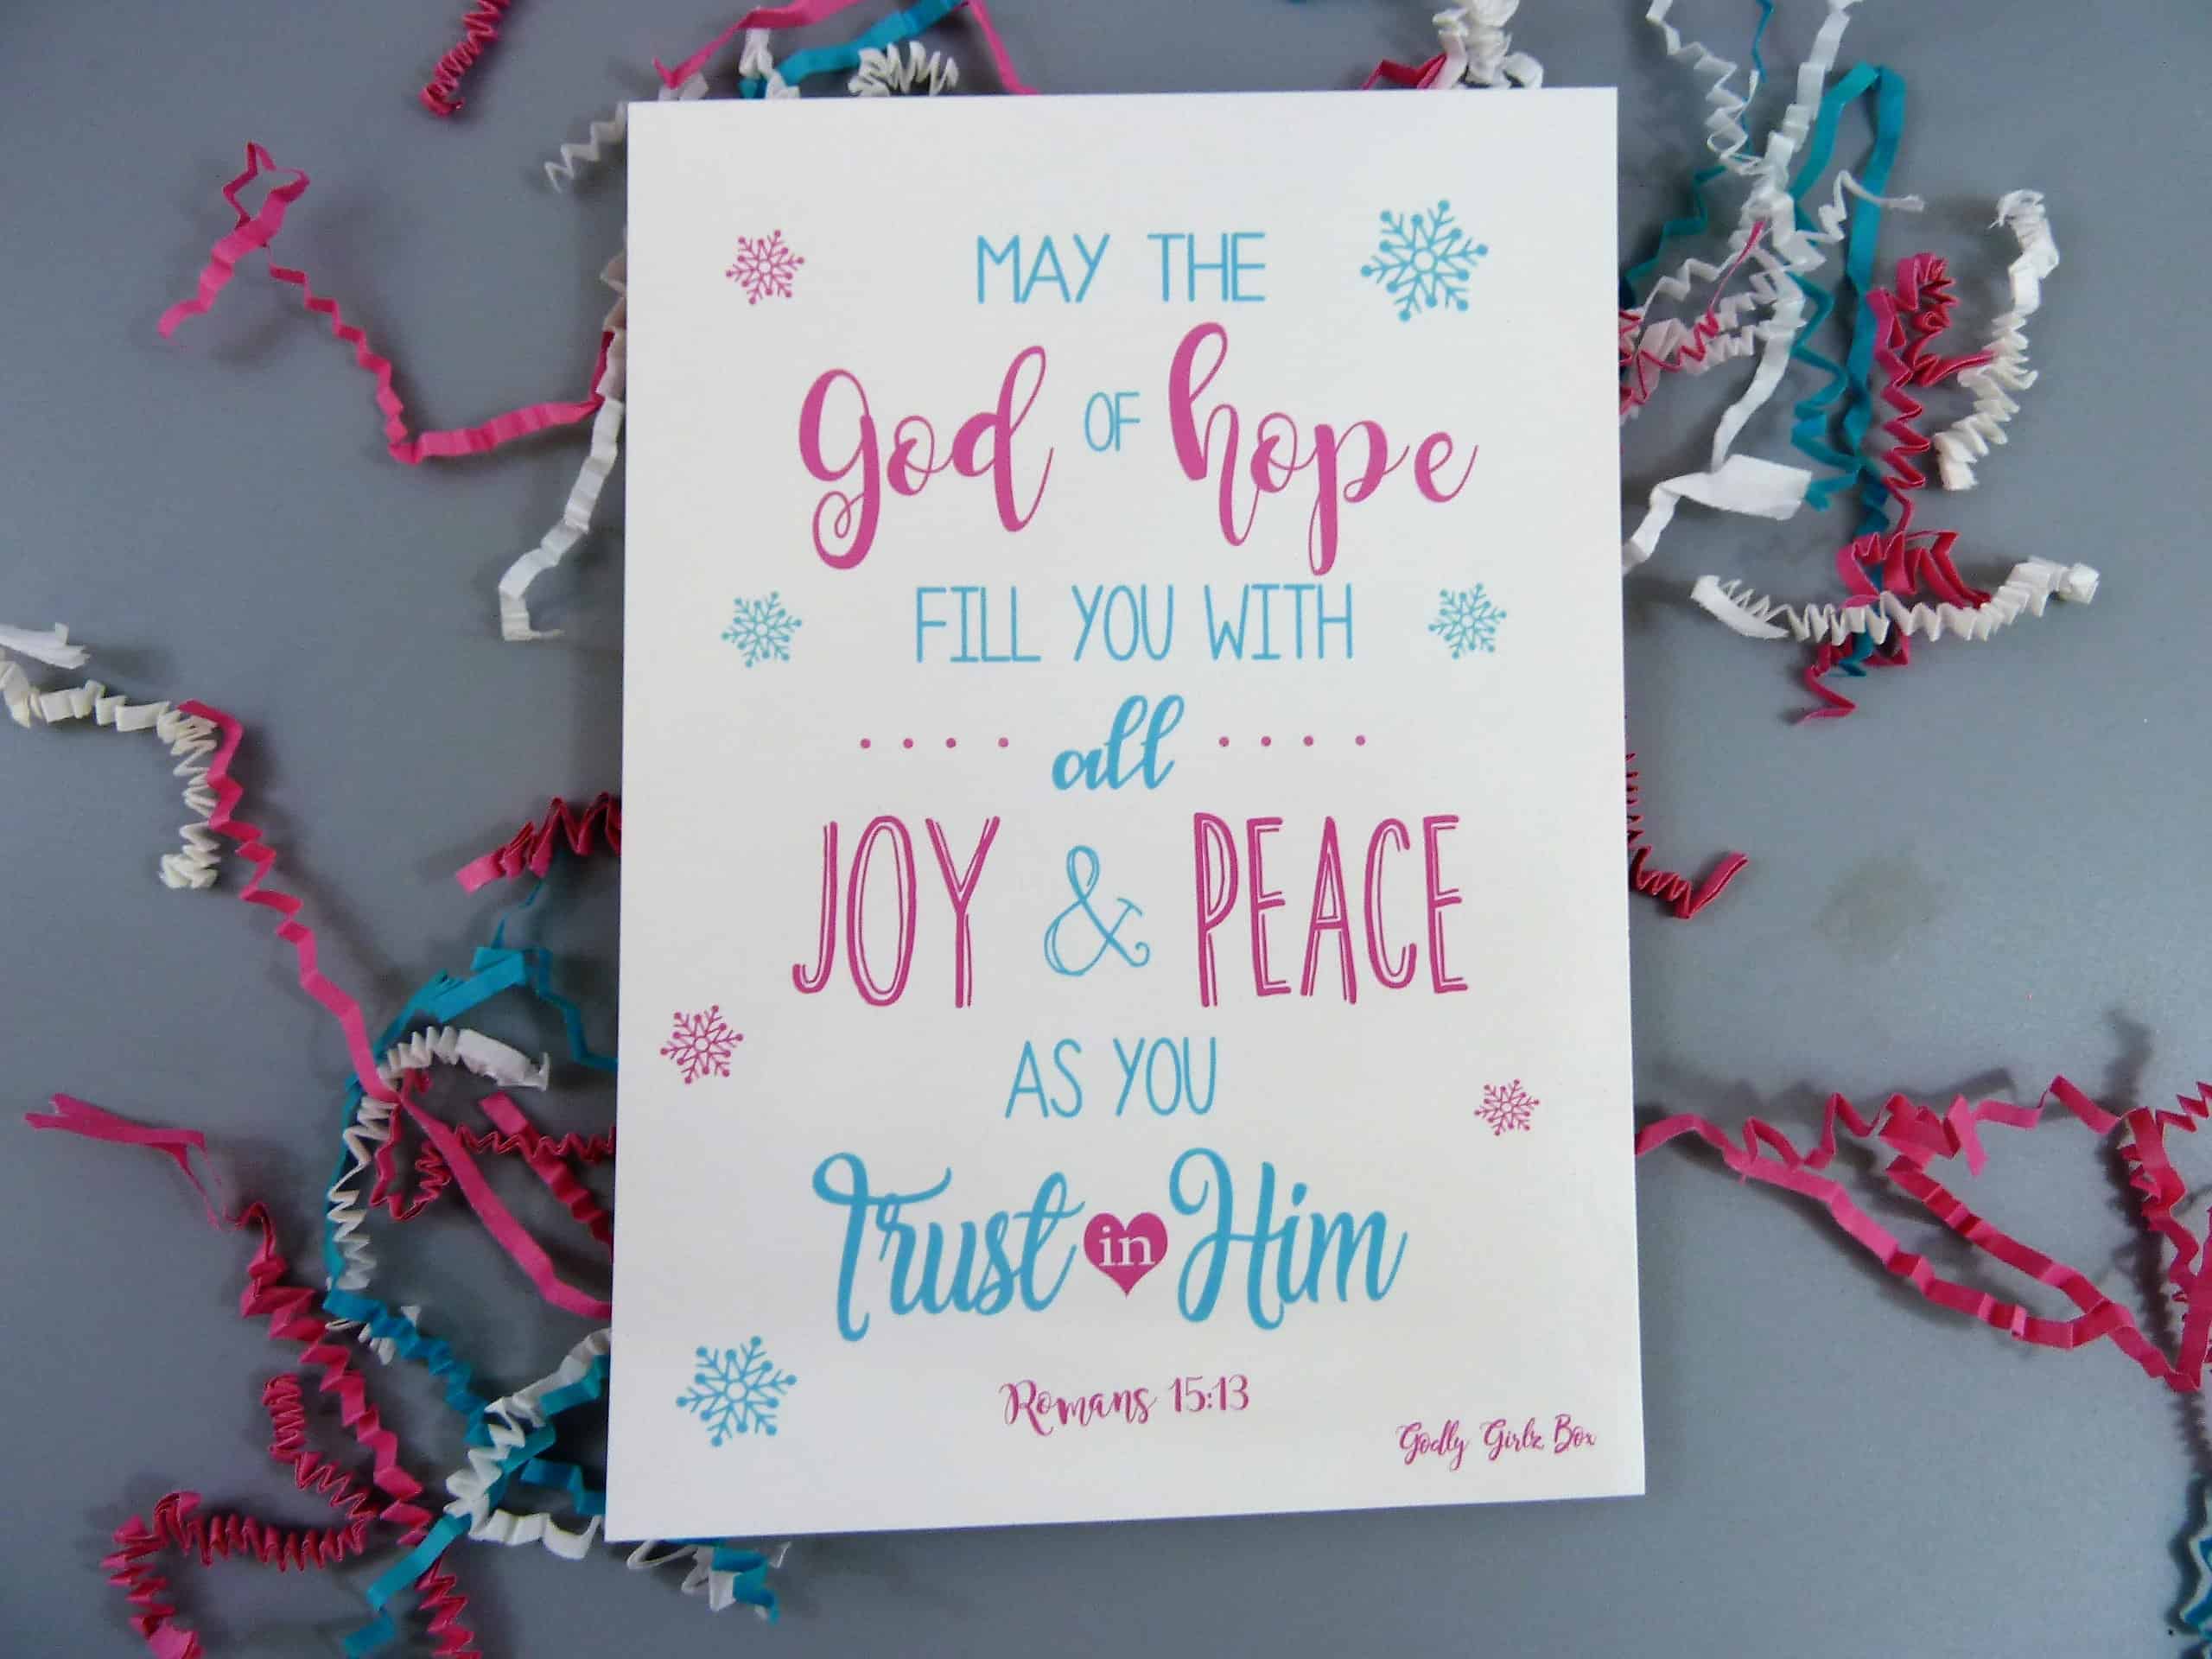 MAY THE
god OF hope
FILL YOU WITH
all
JOY & PEACE
AS YOU
Trust in Him
Romans 15:13
Godly Girlz Box